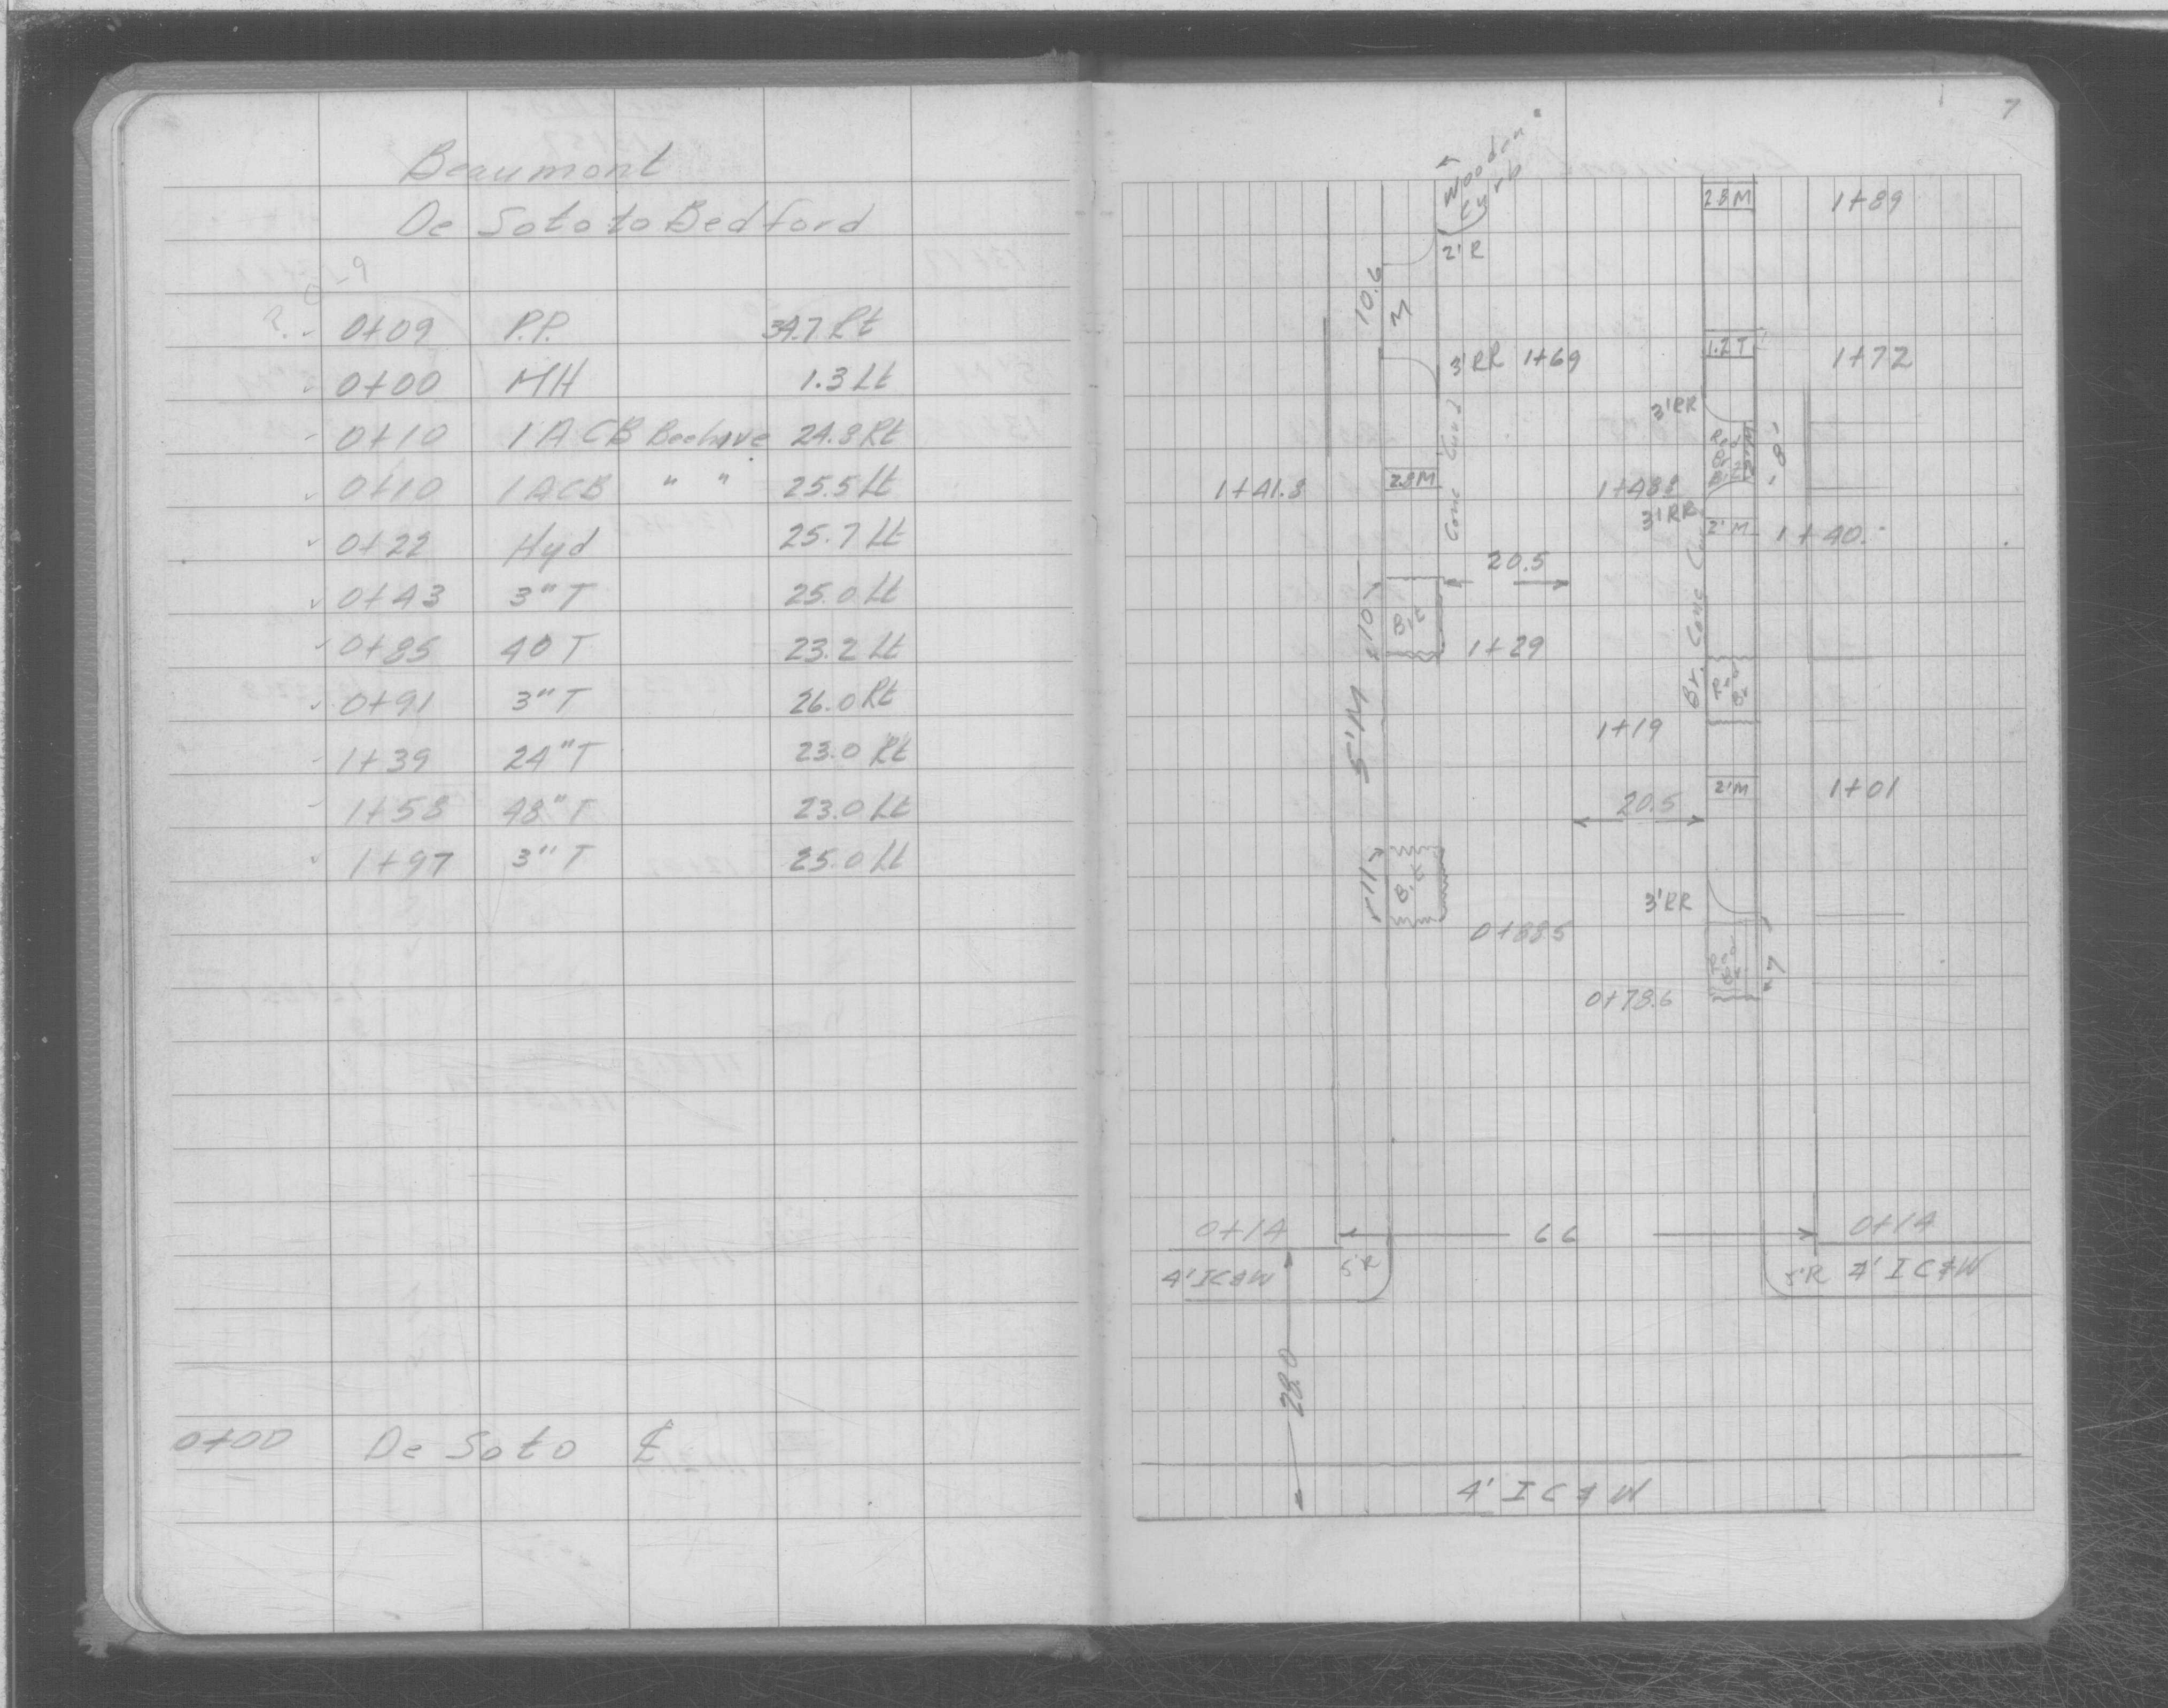 Beaumont
De Soto to Bedford
0+09 P.P. 34.7 Rt
0+00 MH 1.3 Lt
0+10 1 A CB Beehive 24.8 Rt
0+10 1 ACB " " 25.5 Lt
0+22 Hyd 25.7 Lt
0+43 3" T 25.0 Lt
0+85 40 T 23.2 Lt
0+91 3" T 26.0 Rt
1+39 24" T 23.0 Rt
1+58 48" T 23.0 Lt
1+97 3" T 25.0 Lt
0+00 De Soto ℄
7
Wooden
Curb
2.8 M 1+89
2' R
10.6
M
1.2 T 1+72
3' RR 1+69
3' RR
Red
Br
8'
Conc Curb
1+41.8 2.8 M 1+48.8
3' RR
2' M 1+40.
20.5
10
Bit
1+29
Br. Conc
Red
Br
5' M
1+19
2' M 1+01
20.5
11
Bit
3' RR
0+88.5
Red
Br
7
0+78.6
0+14 66 0+14
4' IC&W 5' R 5' R 4' IC&W
28.0
4' IC&W